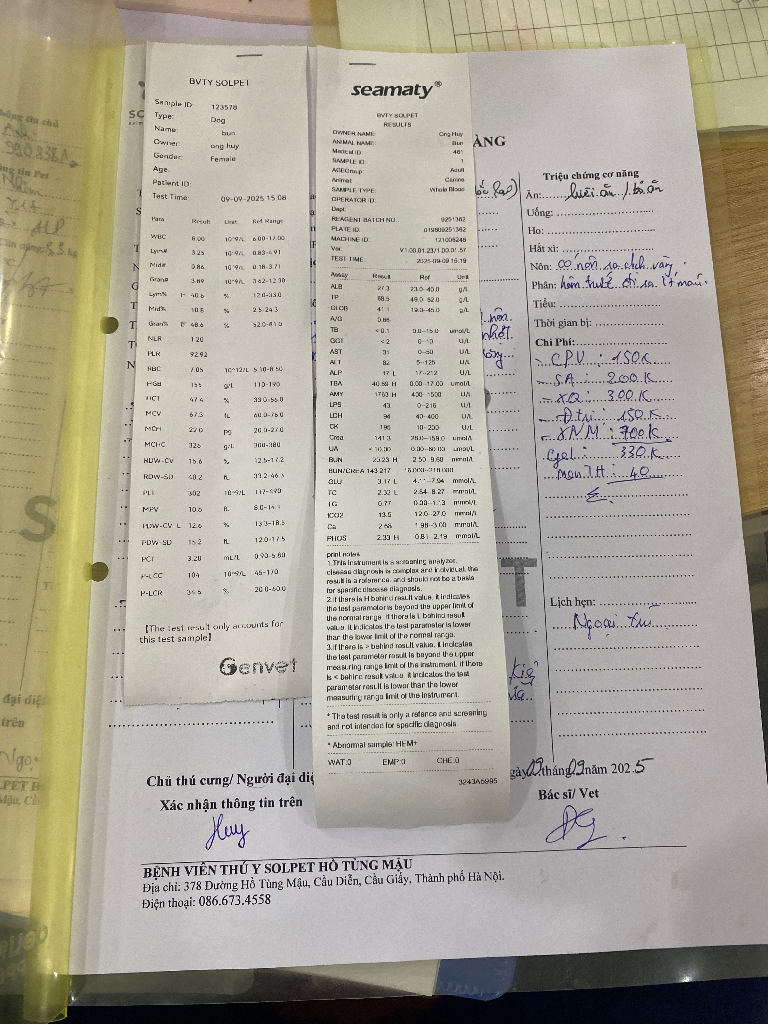 BVTY SOLPET
Sample ID: 123578
Type: Dog
Name: bun
Owner: ong huy
Gender: Female
Age:
Patient ID:
Test Time: 09-09-2025 15:08
Para Result Unit Ref Range
WBC 8.00 10^9/L 6.00-17.00
Lym# 3.25 10^9/L 0.83-4.91
Mid# 0.86 10^9/L 0.18-3.71
Gran# 3.89 10^9/L 3.62-12.30
Lym% H 40.6 % 12.0-33.0
Mid% 10.8 % 2.5-24.3
Gran% 48.6 % 52.0-81.0
NLR 1.20
PLR 92.92
RBC 7.05 10^12/L 5.10-8.50
HGB 155 g/L 110-190
HCT 47.4 % 33.0-56.0
MCV 67.3 fL 60.0-76.0
MCH 22.0 pg 20.0-27.0
MCHC 326 g/L 300-380
RDW-CV 15.6 % 12.5-17.2
RDW-SD 40.2 fL 33.2-46.3
PLT 302 10^9/L 117-490
MPV 10.6 fL 8.0-14.1
PDW-CV L 12.6 % 13.3-18.5
PDW-SD 15.2 fL 12.0-17.5
PCT 3.20 mL/L 0.90-5.80
P-LCC 104 10^9/L 45-170
P-LCR 34.5 % 20.0-60.0
【The test result only accounts for
this test sample】
Genvet
seamaty®
BVTY SOLPET
RESULTS
OWNER NAME: Ong Huy
ANIMAL NAME: Bun
Medical ID: 461
SAMPLE ID: 1
AGEGroup: Adult
Animal: Canine
SAMPLE TYPE: Whole Blood
OPERATOR ID:
Dept:
REAGENT BATCH NO.: 9251362
PLATE ID: 019809251362
MACHINE ID: 121006245
Ver: V1.00.01.23/1.00.01.57
TEST TIME: 2025-09-09 15:19
Assay Result Ref Unit
ALB 27.3 23.0-40.0 g/L
TP 68.5 49.0-82.0 g/L
GLOB 41.1 19.0-45.0 g/L
A/G 0.66
TB <0.1 0.0-15.0 umol/L
GGT <2 0-10 U/L
AST 31 0-50 U/L
ALT 82 5-125 U/L
ALP 17 L 17-212 U/L
TBA 40.59 H 0.00-17.00 umol/L
AMY 1763 H 400-1500 U/L
LPS 43 0-216 U/L
LDH 94 40-400 U/L
CK 196 10-200 U/L
Crea 141.3 28.0-159.0 umol/L
UA <10.00 0.00-60.00 umol/L
BUN 20.23 H 2.50-9.60 mmol/L
BUN/CREA 143.217 16.000-218.000
GLU 3.17 L 4.11-7.94 mmol/L
TC 2.32 L 2.84-8.27 mmol/L
TG 0.77 0.00-1.13 mmol/L
tCO2 13.5 12.0-27.0 mmol/L
Ca 2.68 1.98-3.00 mmol/L
PHOS 2.33 H 0.81-2.19 mmol/L
print notes
1.This instrument is a screening analyzer,
disease diagnosis is complex and individual, the
result is a reference, and should not be a basis
for specific disease diagnosis.
2.If there is H behind result value, it indicates
the test parameter is beyond the upper limit of
the normal range. If there is L behind result
value, it indicates the test parameter is lower
than the lower limit of the normal range.
3.If there is > behind result value, it indicates
the test parameter result is beyond the upper
measuring range limit of the instrument, if there
is < behind result value, it indicates the test
parameter result is lower than the lower
measuring range limit of the instrument.
* The test result is only a refence and screening
and not intended for specific diagnosis
* Abnormal sample: HEM+
WAT:0 EMP:0 CHE:0
3243A5995
ÀNG
Triệu chứng cơ năng
Ăn: lười ăn / bỏ ăn
Uống:
Ho:
Hắt xì:
Nôn: có nôn ra dịch vàng
Phân: hôm trước đi ra ít máu.
Tiểu:
Thời gian bị:
Chi Phí:
- CPV : 150K
- SA : 200K
- XQ : 300K
- Đtrị : 150K
- XNM : 700K
Gel : 330K
Men TH : 40
Lịch hẹn:
Ngoại trú
Chủ thú cưng/ Người đại diệ
Xác nhận thông tin trên
Huy
gày 09 tháng 09 năm 2025
Bác sĩ/ Vet
BỆNH VIỆN THÚ Y SOLPET HỒ TÙNG MẬU
Địa chỉ: 378 Đường Hồ Tùng Mậu, Cầu Diễn, Cầu Giấy, Thành phố Hà Nội.
Điện thoại: 086.673.4558